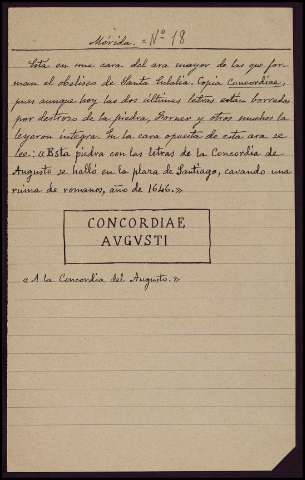 Mérida. = Nº 18
Esta en una cara del ara mayor de las que for-
man el obelisco de Santa Eulalia. Copia Concordiae,
pues aunque hoy las dos últimas letras estan borradas
por destrozo de la piedra, Forner y otros muchos la
leyeron integra. En la cara opuesta de esta ara se
lee: «Esta piedra con las letras de la Concordia de
Augusto se halló en la plaza de Santiago, cavando una
ruina de romanos, año de 1646.»
CONCORDIAE
AVGVSTI
«A la Concordia del Augusto.»